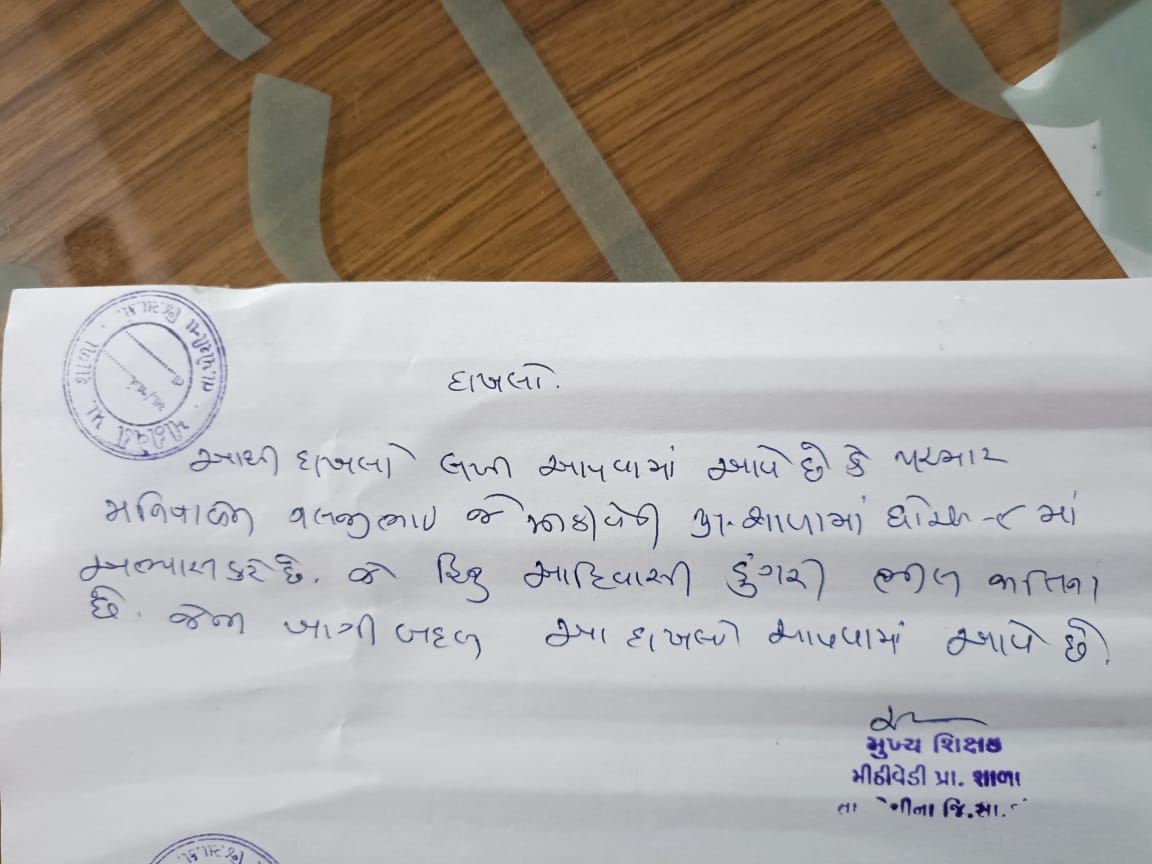 દાખલો.
આથી દાખલો લખી આપવામાં આવે છે કે પરમાર
વલજીભાઇ જે પ્રા. શાળામાં ધોરણ-૮ માં
અભ્યાસ કરે છે. જે હિન્દુ આદિવાસી ડુંગરી ભીલ જાતિના
છે. જેની ખાત્રી બદલ આ દાખલો આપવામાં આવે છે.
મુખ્ય શિક્ષક
મીઠીવેડી પ્રા. શાળા
તા જિ.સા.